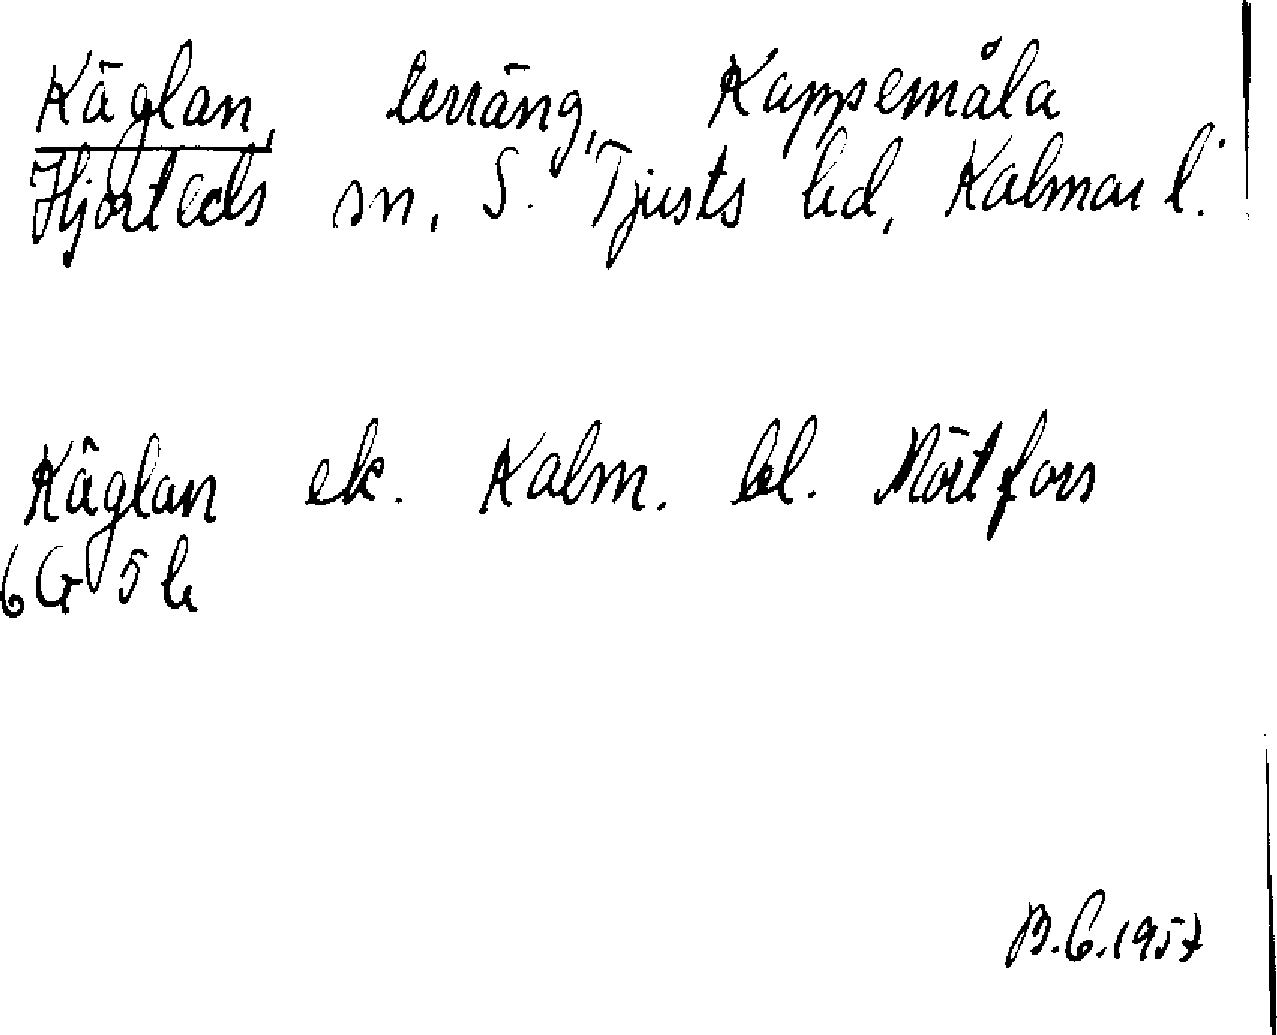 Käglan, terräng, Kappemåla
Hjorteds sn, S. Tjusts hd, Kalmar l.
Käglan ek. Kalm. bl. Mörtfors
6G 5h
B.E. 1957